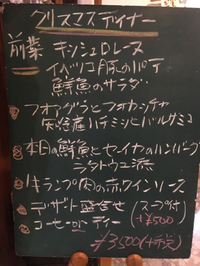 クリスマスディナー
前菜 キッシュロレーヌ
イベリコ豚のパテ
鮮魚のサラダ
フォアグラと
ハチミツとバルサミコ
本日の鮮魚と のハンバーグ
ラタトゥユ添
肉の赤ワインソース
デザート盛合せ (スープ付
+¥500)
コーヒーorティー
¥3500(+税)